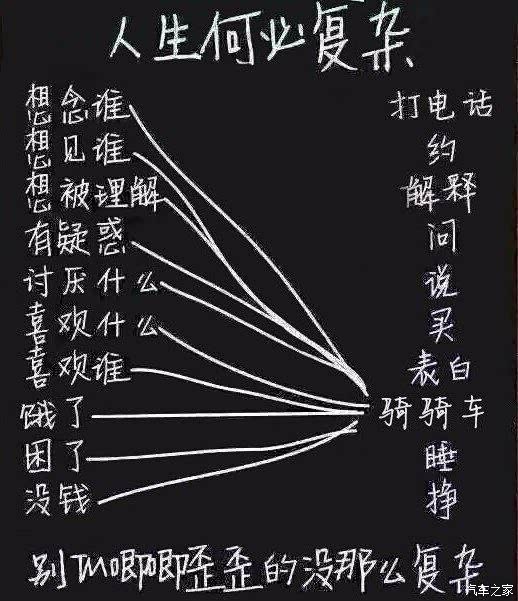 人生何必复杂
想念谁 打电话
想见谁 约
想被理解 解释
有疑惑 问
讨厌什么 说
喜欢什么 买
喜欢谁 表白
饿了 骑骑车
困了 睡
没钱 挣
别TM唧唧歪歪的没那么复杂
汽车之家